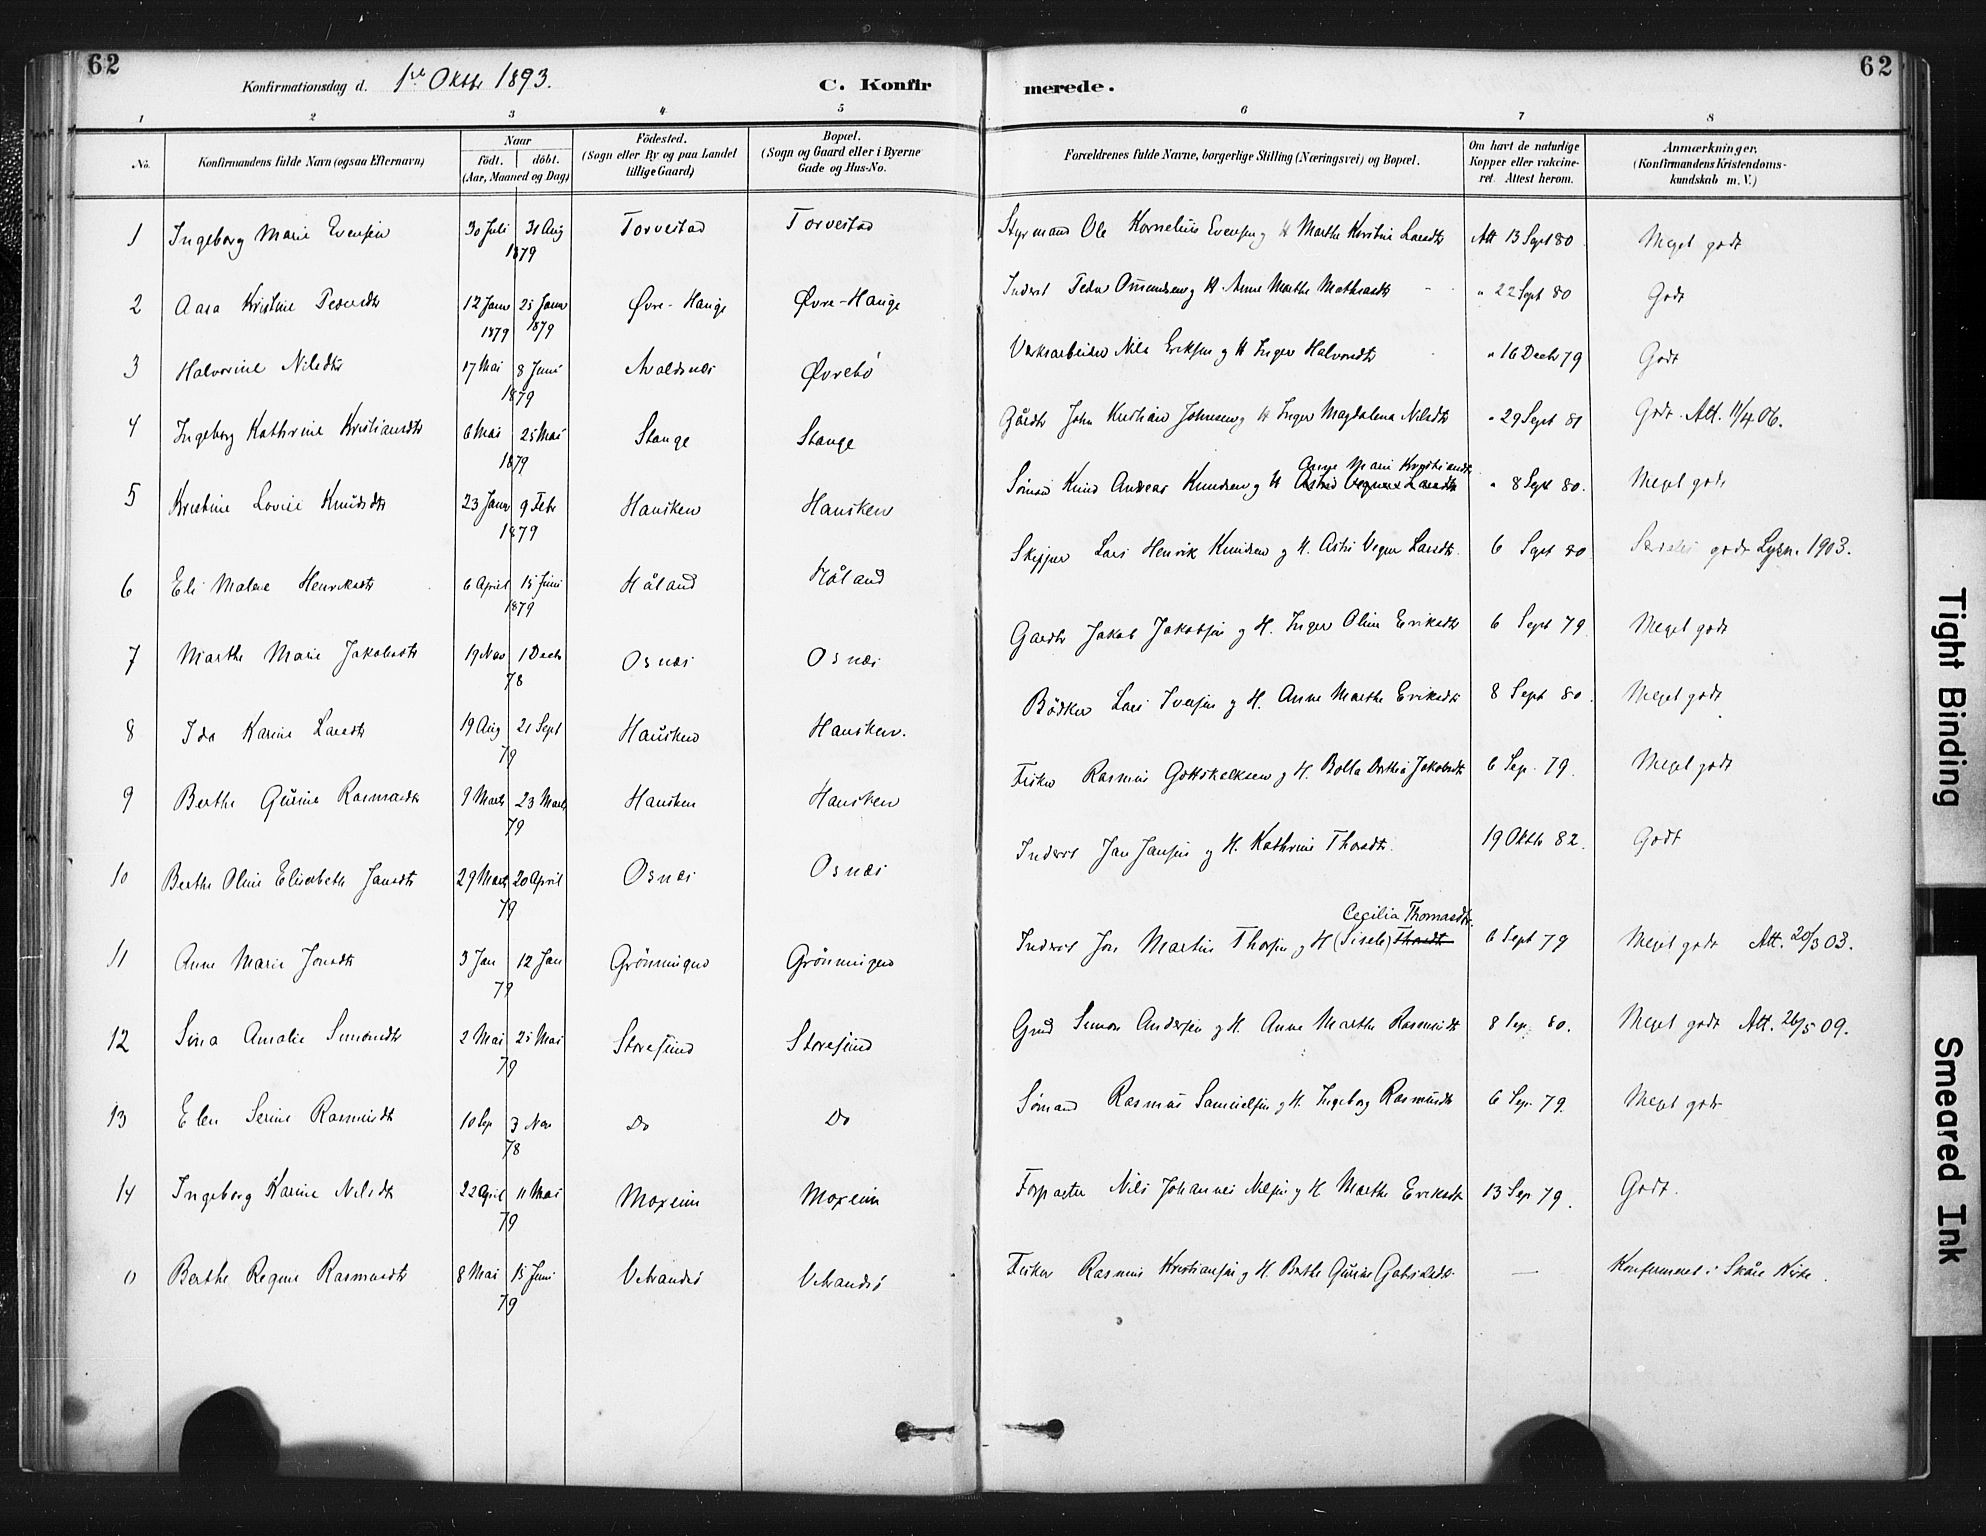 62
Konfirmationsdag d. 1ste Oktbr 1893.
C. Konfir
merede.
62
1 2 3 4 5 6 7 8
No.
Konfirmandens fulde Navn (ogsaa Efternavn)
Naar
födt. döbt.
(Aar, Maaned og Dag)
Födested.
(Sogn eller By og paa Landet
tillige Gaard)
Bopæl.
(Sogn og Gaard eller i Byerne
Gade og Hus-No.
Forældrenes fulde Navne, borgerlige Stilling (Næringsvei) og Bopæl.
Om havt de naturlige
Kopper eller vakcine-
ret. Attest herom.
Anmærkninger,
(Konfirmandens Kristendoms-
kundskab m. V.)
1 Ingeborg Marie Evensen 30 Juli 31 Aug 1879 Torvestad Torvestad Styrmand Ole Kornelius Evensen og H Marthe Kirstine Larsdtr Att 13 Sept 80. Meget godt
2 Aasa Kristine Pedersdtr 12 Janr 1879 25 Janr 1879 Øvre-Hauge Øvre-Hauge Inderst Peder Omundsen og H. Anne Marthe Mathiasdtr " 22 Sept 80 Godt
3 Halvorine Nilsdtr 17 Mai 8 Juni 1879 Avaldsnes Øvrebö Værksarbeider Nils Eriksen og H Inger Halvorsdtr " 16 Decbr 79 Godt
4 Ingeborg Kathrine Kristiansdtr 6 Mai 25 Mai 1879 Stange Stange Gårdbr John Kristian Johnsen og H Inger Magdalena Nilsdtr " 29 Sept 81 Godt. Att. 11/4 06.
5 Kristine Lovise Knudsdtr 23 Janr 9 Febr 1879 Hausken Hausken Sömand Knud Andreas Knudsen og H Anne Marie Kristiansdtr Astrid Vegner Larsdtr " 8 Sept 80. Meget godt
6 Eli Malene Henriksdtr 6 April 15 Juni 1879 Håland Håland Skipper Lars Henrik Knudsen og H. Astri Vegner Larsdtr. 6 Sept 80 Særdeles godt Lysn. 1903.
7 Marthe Marie Jakobsdtr 19 Nov 1 Decbr 78 Osnes Osnes Gårdbr Jakob Jakobsen og H. Inger Oline Eriksdtr 6 Sept 79 Meget godt
8 Ida Karine Larsdtr 19 Aug 21 Sept 79 Hausken Hausken. Bödker Lars Iversen og H. Anne Marthe Eriksdtr 8 Sept 80. Meget godt
9 Berthe Gurine Rasmusdtr 9 Marts 23 Marts 79 Hausken Hausken Fisker Rasmus Gottskalksen og H. Bolla Dorthea Jakobsdtr 6 Sep. 79. Meget godt
10 Berthe Oline Elisabeth Jansdtr 29 Marts 20 April 79 Osnes Osnes Inderst Jan Jansen og H. Kathrine Thorsdtr. 19 Oktbr 82. Godt
11 Anne Marie Jonsdtr 3 Jan 12 Jan 79 Grönningen Grönningen Inderst Jon Martin Thorsen og H (Sisele) Thorsdtr Cecilia Thomasdtr. 6 Sept 79 Meget godt Att. 20/3 03.
12 Sina Amalie Simonsdtr 2 Mai 25 Mai 79 Storesund Storesund Grmd Simon Andersen og H. Anne Marthe Rasmusdtr 8 Sep. 80. Meget godt Att. 26/5 09.
13 Elen Serine Rasmusdtr 10 Sep 3 Nov 78 Do Do Sömand Rasmus Samuelsen og H. Ingeborg Rasmusdtr 6 Sep. 79. Meget godt
14 Ingeborg Karine Nilsdtr 22 April 11 Mai 79 Moxeim Moxeim Forpagter Nils Johannes Nilsen og H Marthe Eriksdtr 13 Sep 79. Godt.
0 Berthe Regine Rasmusdtr 8 Mai 15 Juni 79 Vibrandsö Vibrandsö Fisker Rasmus Kristiansen og H. Berthe Gurine Gabrielsdtr. — Konfirmeret i Skåre Kirke.
Tight Binding
Smeared Ink